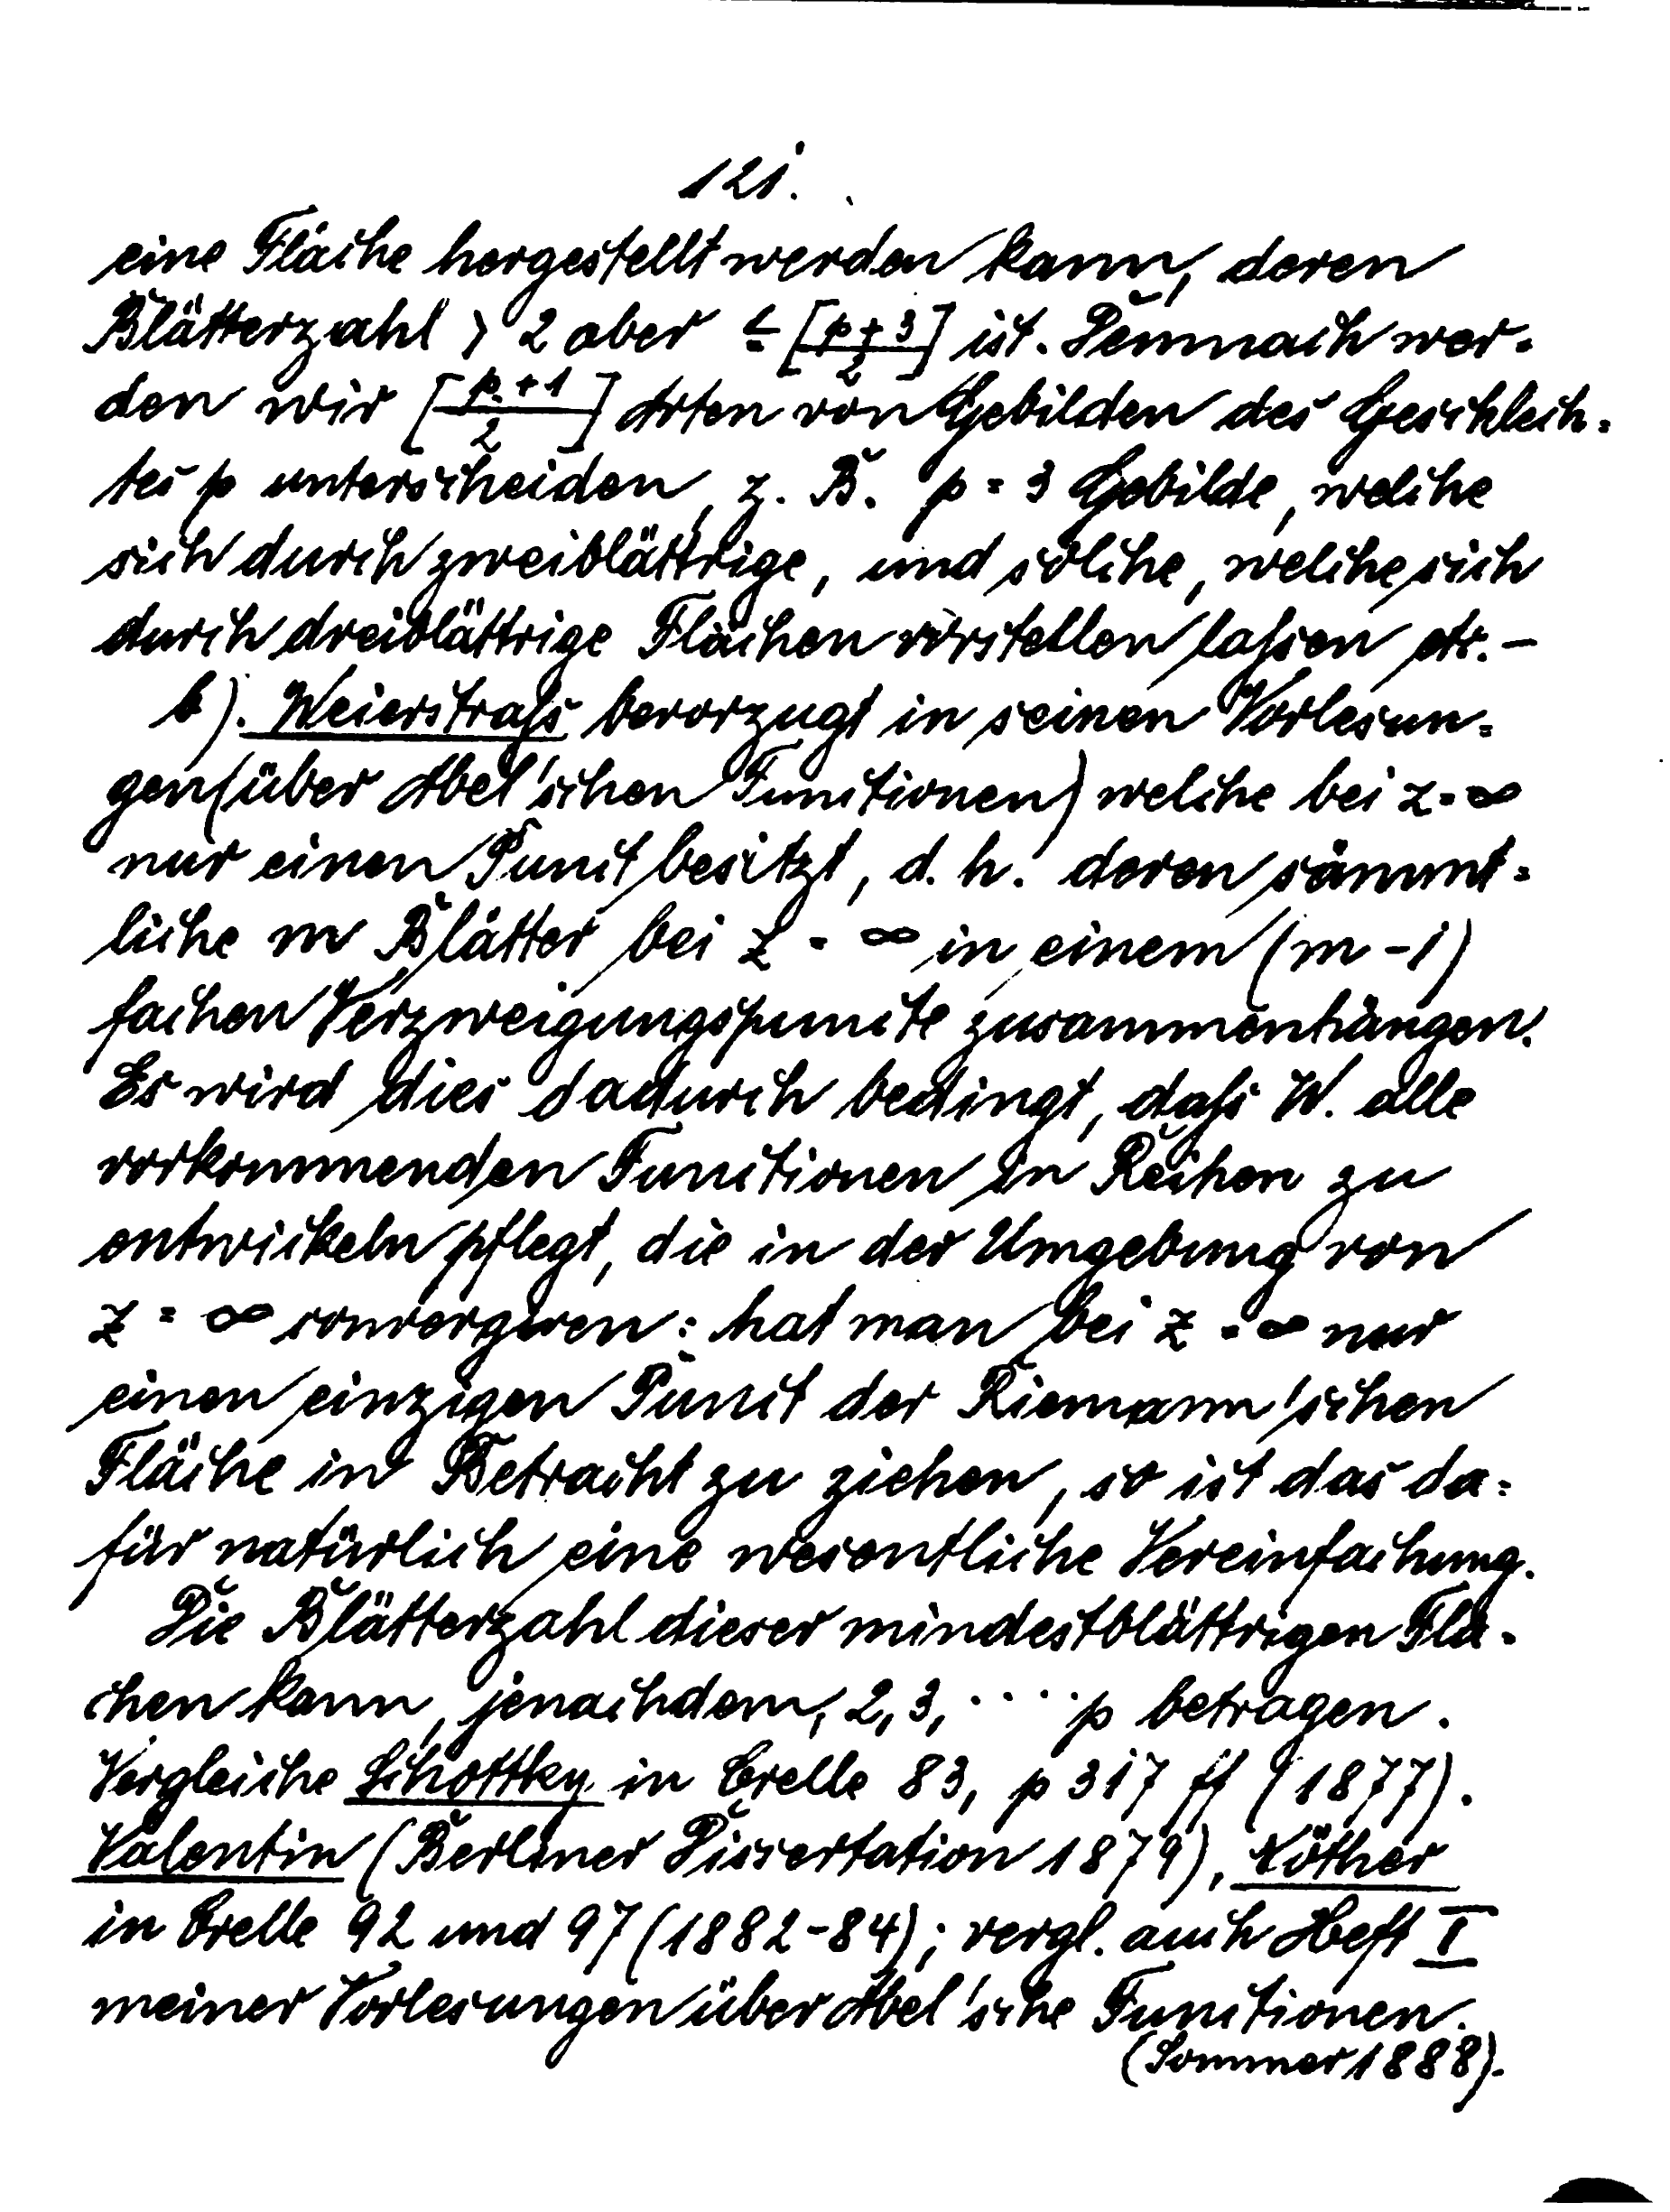 121.
eine Fläche hergestellt werden kann, deren
Blätterzahl > 2 aber ≤ [(p+3)/2] ist. Demnach wer-
den wir [(p+1)/2] Arten von Gebilden des Geschlech-
tes p unterscheiden, z. B. p = 3 Gebilde, welche
sich durch zweiblättrige, und solche, welche sich
durch dreiblättrige Flächen vorstellen lassen etc. –
b). Weierstraß bevorzugt in seinen Vorlesun-
gen (über Abel'schen Functionen) welche bei z = ∞
nur einen Punct besitzt, d. h. deren sämmt-
liche m Blätter bei z = ∞ in einem (m - 1)
fachen Verzweigungspuncte zusammenhängen.
Es wird dies dadurch bedingt, daß W. alle
vorkommenden Functionen in Reihen zu
entwickeln pflegt, die in der Umgebung von
z = ∞ convergiren: hat man bei z = ∞ nur
einen einzigen Punct der Riemann'schen
Fläche in Betracht zu ziehen, so ist das da-
für natürlich eine wesentliche Vereinfachung.
Die Blätterzahl dieser mindestblättrigen Flä-
chen kann, jenachdem, 2, 3, .... p betragen.
Vergleiche Schottky in Crelle 83, p 317 ff (1877).
Valentin (Berliner Dissertation 1879), Nöther
in Crelle 92 und 97 (1882-84); vergl. auch Heft I
meiner Vorlesungen über Abel'sche Functionen.
(Sommer 1888).